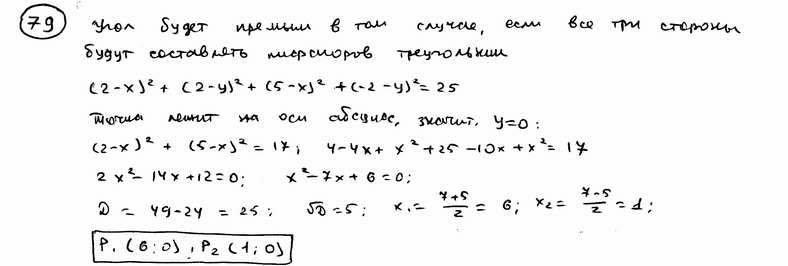 79 Угол будет прямым в том случае, если все три стороны
будут составлять пифагоров треугольник
(2-x)² + (2-y)² + (5-x)² + (-2-y)² = 25
Точка лежит на оси абсцисс, значит, y=0:
(2-x)² + (5-x)² = 17; 4-4x+x²+25-10x+x²=17
2x²-14x+12=0; x²-7x+6=0;
D = 49-24 = 25; √D=5; x₁= (7+5)/2 = 6; x₂= (7-5)/2 = 1;
P₁ (6;0), P₂ (1;0)